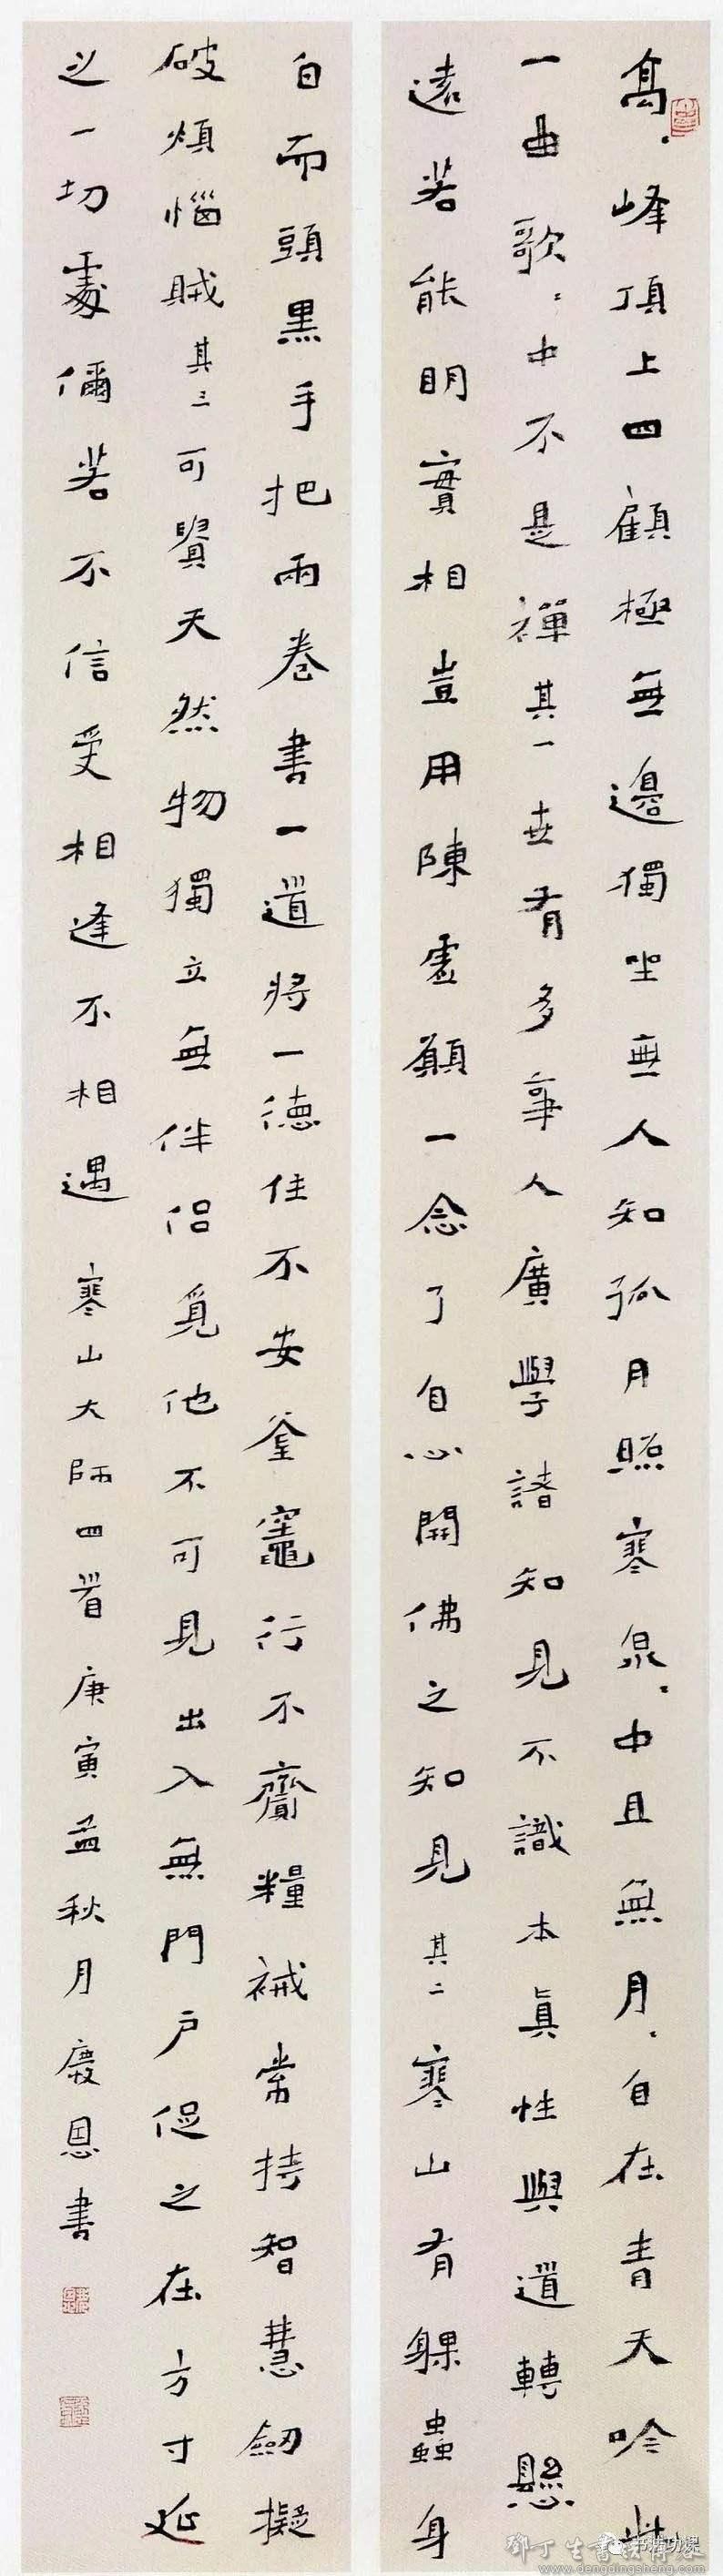 高〻峰頂上四顧極無邊獨坐無人知孤月照寒泉〻中且無月〻自在青天吟此
一曲歌〻中不是禪其一世有多事人廣學諸知見不識本真性與道轉懸
遠若能明實相豈用陳虛願一念了自心開佛之知見其二寒山有躶蟲身
白而頭黑手把兩卷書一道將一德住不安釜竈行不齎糧裓常持智慧劒擬
破煩惱賊其三可貴天然物獨立無伴侶覓他不可見出入無門戶促之在方寸延
之一切處儞若不信受相逢不相遇 寒山大師四首 庚寅孟秋月慶恩書
www.dengdingsheng.com